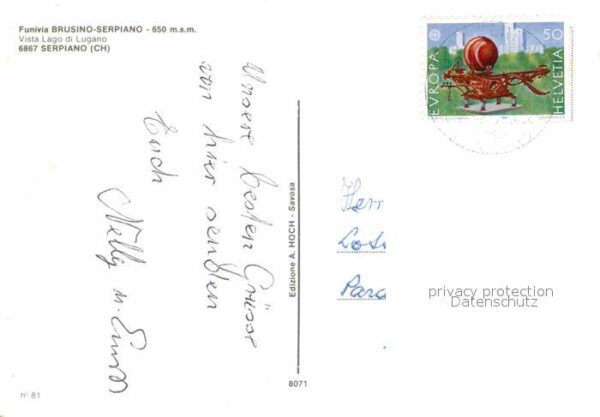 Funivia BRUSINO-SERPIANO - 650 m.s.m.
Vista Lago di Lugano
6867 SERPIANO (CH)
Unsere besten Grüsse
von hier senden
Euch
Nelly u.
Edizione A. HOCH - Savosa
EUROPA
50
HELVETIA
Herr
privacy protection
Datenschutz
n° 81
8071